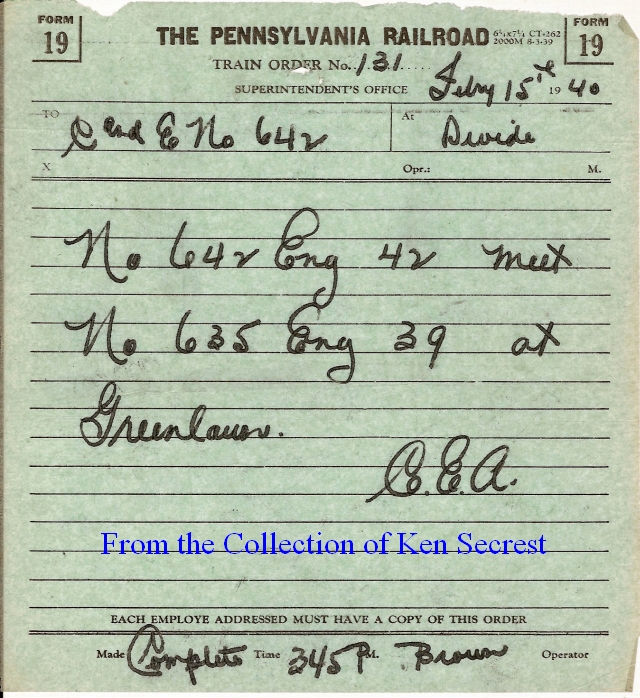 FORM 19
THE PENNSYLVANIA RAILROAD
6¼x7¼ CT-262
2000M 8-3-39
FORM 19
TRAIN ORDER No. 131
SUPERINTENDENT'S OFFICE Feby 15th 1940
TO C and E No 642 At Divide
X Opr.: M.
No 642 Eng 42 meet
No 635 Eng 39 at
Greenlawn.
C.E.A.
From the Collection of Ken Secrest
EACH EMPLOYE ADDRESSED MUST HAVE A COPY OF THIS ORDER
Made Complete Time 345 P M. Brown Operator